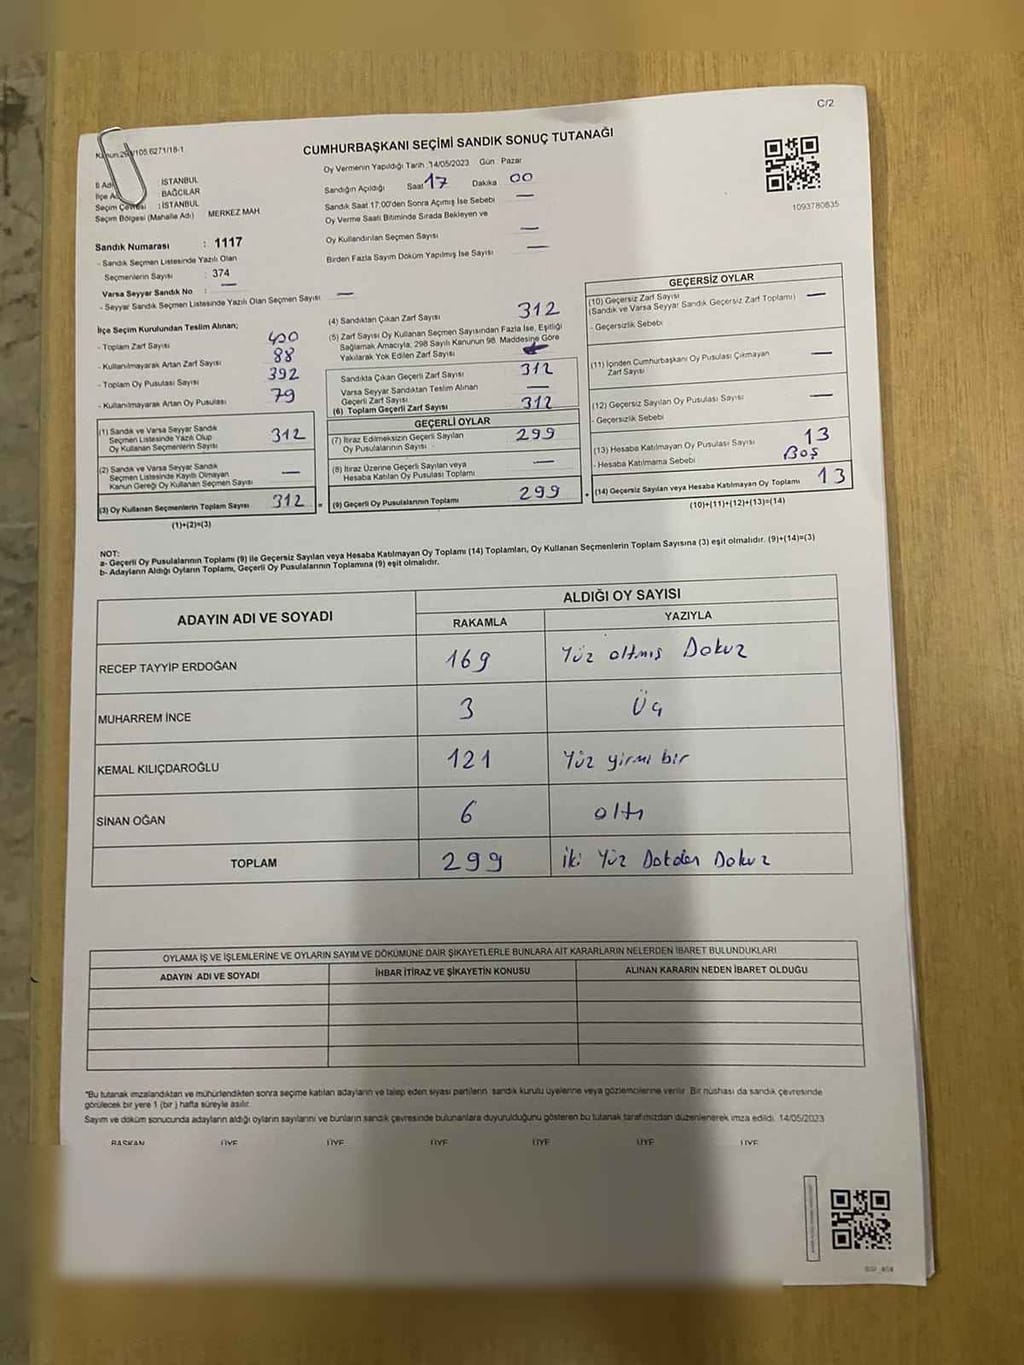 C/2
CUMHURBAŞKANI SEÇİMİ SANDIK SONUÇ TUTANAĞI
Oy Vermenin Yapıldığı Tarih :14/05/2023 Gün : Pazar
1093780835
: İSTANBUL
: BAĞCILAR
: İSTANBUL
Seçim Bölgesi (Mahalle Adı) MERKEZ MAH
Sandığın Açıldığı Saat 17 Dakika 00
Sandık Saat 17:00'den Sonra Açımış İse Sebebi —
Oy Verme Saati Bitiminde Sırada Bekleyen ve
Oy Kullandırılan Seçmen Sayısı —
Birden Fazla Sayım Döküm Yapılmış İse Sayısı —
Sandık Numarası : 1117
- Sandık Seçmen Listesinde Yazılı Olan
Seçmenlerin Sayısı : 374
Varsa Seyyar Sandık No : —
- Seyyar Sandık Seçmen Listesinde Yazılı Olan Seçmen Sayısı —
İlçe Seçim Kurulundan Teslim Alınan;
- Toplam Zarf Sayısı 400
- Kullanılmayarak Artan Zarf Sayısı 88
- Toplam Oy Pusulası Sayısı 392
- Kullanılmayarak Artan Oy Pusulası 79
(1) Sandık ve Varsa Seyyar Sandık
Seçmen Listesinde Yazılı Olup
Oy Kullanan Seçmenlerin Sayısı 312
(2) Sandık ve Varsa Seyyar Sandık
Seçmen Listesinde Kayıtlı Olmayan
Kanun Gereği Oy Kullanan Seçmen Sayısı —
(3) Oy Kullanan Seçmenlerin Toplam Sayısı 312 =
(1)+(2)=(3)
(4) Sandıktan Çıkan Zarf Sayısı 312
(5) Zarf Sayısı Oy Kullanan Seçmen Sayısından Fazla İse, Eşitliği
Sağlamak Amacıyla, 298 Sayılı Kanunun 98. Maddesine Göre
Yakılarak Yok Edilen Zarf Sayısı
Sandıkta Çıkan Geçerli Zarf Sayısı 312
Varsa Seyyar Sandıktan Teslim Alınan
Geçerli Zarf Sayısı —
(6) Toplam Geçerli Zarf Sayısı 312
GEÇERLİ OYLAR
(7) İtiraz Edilmeksizin Geçerli Sayılan
Oy Pusulalarının Sayısı 299
(8) İtiraz Üzerine Geçerli Sayılan veya
Hesaba Katılan Oy Pusulası Toplamı —
(9) Geçerli Oy Pusulalarının Toplamı 299
GEÇERSİZ OYLAR
(10) Geçersiz Zarf Sayısı
(Sandık ve Varsa Seyyar Sandık Geçersiz Zarf Toplamı) —
- Geçersizlik Sebebi
(11) İçinden Cumhurbaşkanı Oy Pusulası Çıkmayan
Zarf Sayısı —
(12) Geçersiz Sayılan Oy Pusulası Sayısı —
- Geçersizlik Sebebi
(13) Hesaba Katılmayan Oy Pusulası Sayısı 13
- Hesaba Katılmama Sebebi Boş
(14) Geçersiz Sayılan veya Hesaba Katılmayan Oy Toplamı 13
(10)+(11)+(12)+(13)=(14)
NOT:
a- Geçerli Oy Pusulalarının Toplamı (9) ile Geçersiz Sayılan veya Hesaba Katılmayan Oy Toplamı (14) Toplamları, Oy Kullanan Seçmenlerin Toplam Sayısına (3) eşit olmalıdır. (9)+(14)=(3)
b- Adayların Aldığı Oyların Toplamı, Geçerli Oy Pusulalarının Toplamına (9) eşit olmalıdır.
ADAYIN ADI VE SOYADI ALDIĞI OY SAYISI
RAKAMLA YAZIYLA
RECEP TAYYİP ERDOĞAN 169 Yüz altmış Dokuz
MUHARREM İNCE 3 Üç
KEMAL KILIÇDAROĞLU 121 Yüz yirmi bir
SİNAN OĞAN 6 altı
TOPLAM 299 İki Yüz Doksan Dokuz
OYLAMA İŞ VE İŞLEMLERİNE VE OYLARIN SAYIM VE DÖKÜMÜNE DAİR ŞİKAYETLERLE BUNLARA AİT KARARLARIN NELERDEN İBARET BULUNDUKLARI
ADAYIN ADI VE SOYADI İHBAR İTİRAZ VE ŞİKAYETİN KONUSU ALINAN KARARIN NEDEN İBARET OLDUĞU
*Bu tutanak imzalandıktan ve mühürlendikten sonra seçime katılan adayların ve talep eden siyasi partilerin sandık kurulu üyelerine veya gözlemcilerine verilir. Bir nüshası da sandık çevresinde
görülecek bir yere 1 (bir) hafta süreyle asılır.
Sayım ve döküm sonucunda adayların aldığı oyların sayılarını ve bunların sandık çevresinde bulunanlara duyurulduğunu gösteren bu tutanak tarafımızdan düzenlenerek imza edildi. 14/05/2023
BAŞKAN ÜYE ÜYE ÜYE ÜYE ÜYE ÜYE